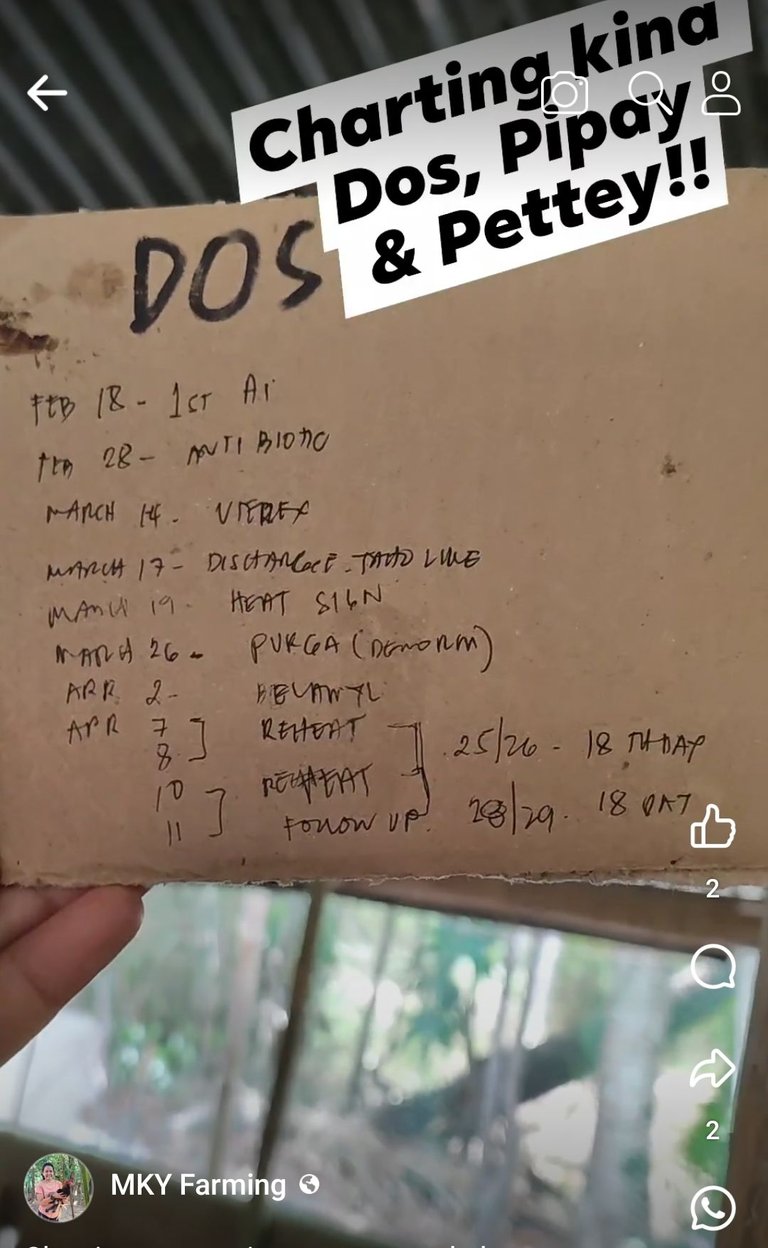 Charting kina
Dos, Pipay
& Pettey!!
DOS
FEB 18 - 1ST AI
FEB 28 - ANTIBIOTIC
MARCH 14 - UTEREX
MARCH 17 - DISCHARGE - TAHO LIKE
MARCH 19 - HEAT SIGN
MARCH 26 - PURGA (DEWORM)
APR 2 -
APR 7 ] REHEAT
8 25/26 - 18 TH DAY
10 ] REHEAT
11 FOLLOW UP 28/29 - 18 DAY
2
2
MKY Farming